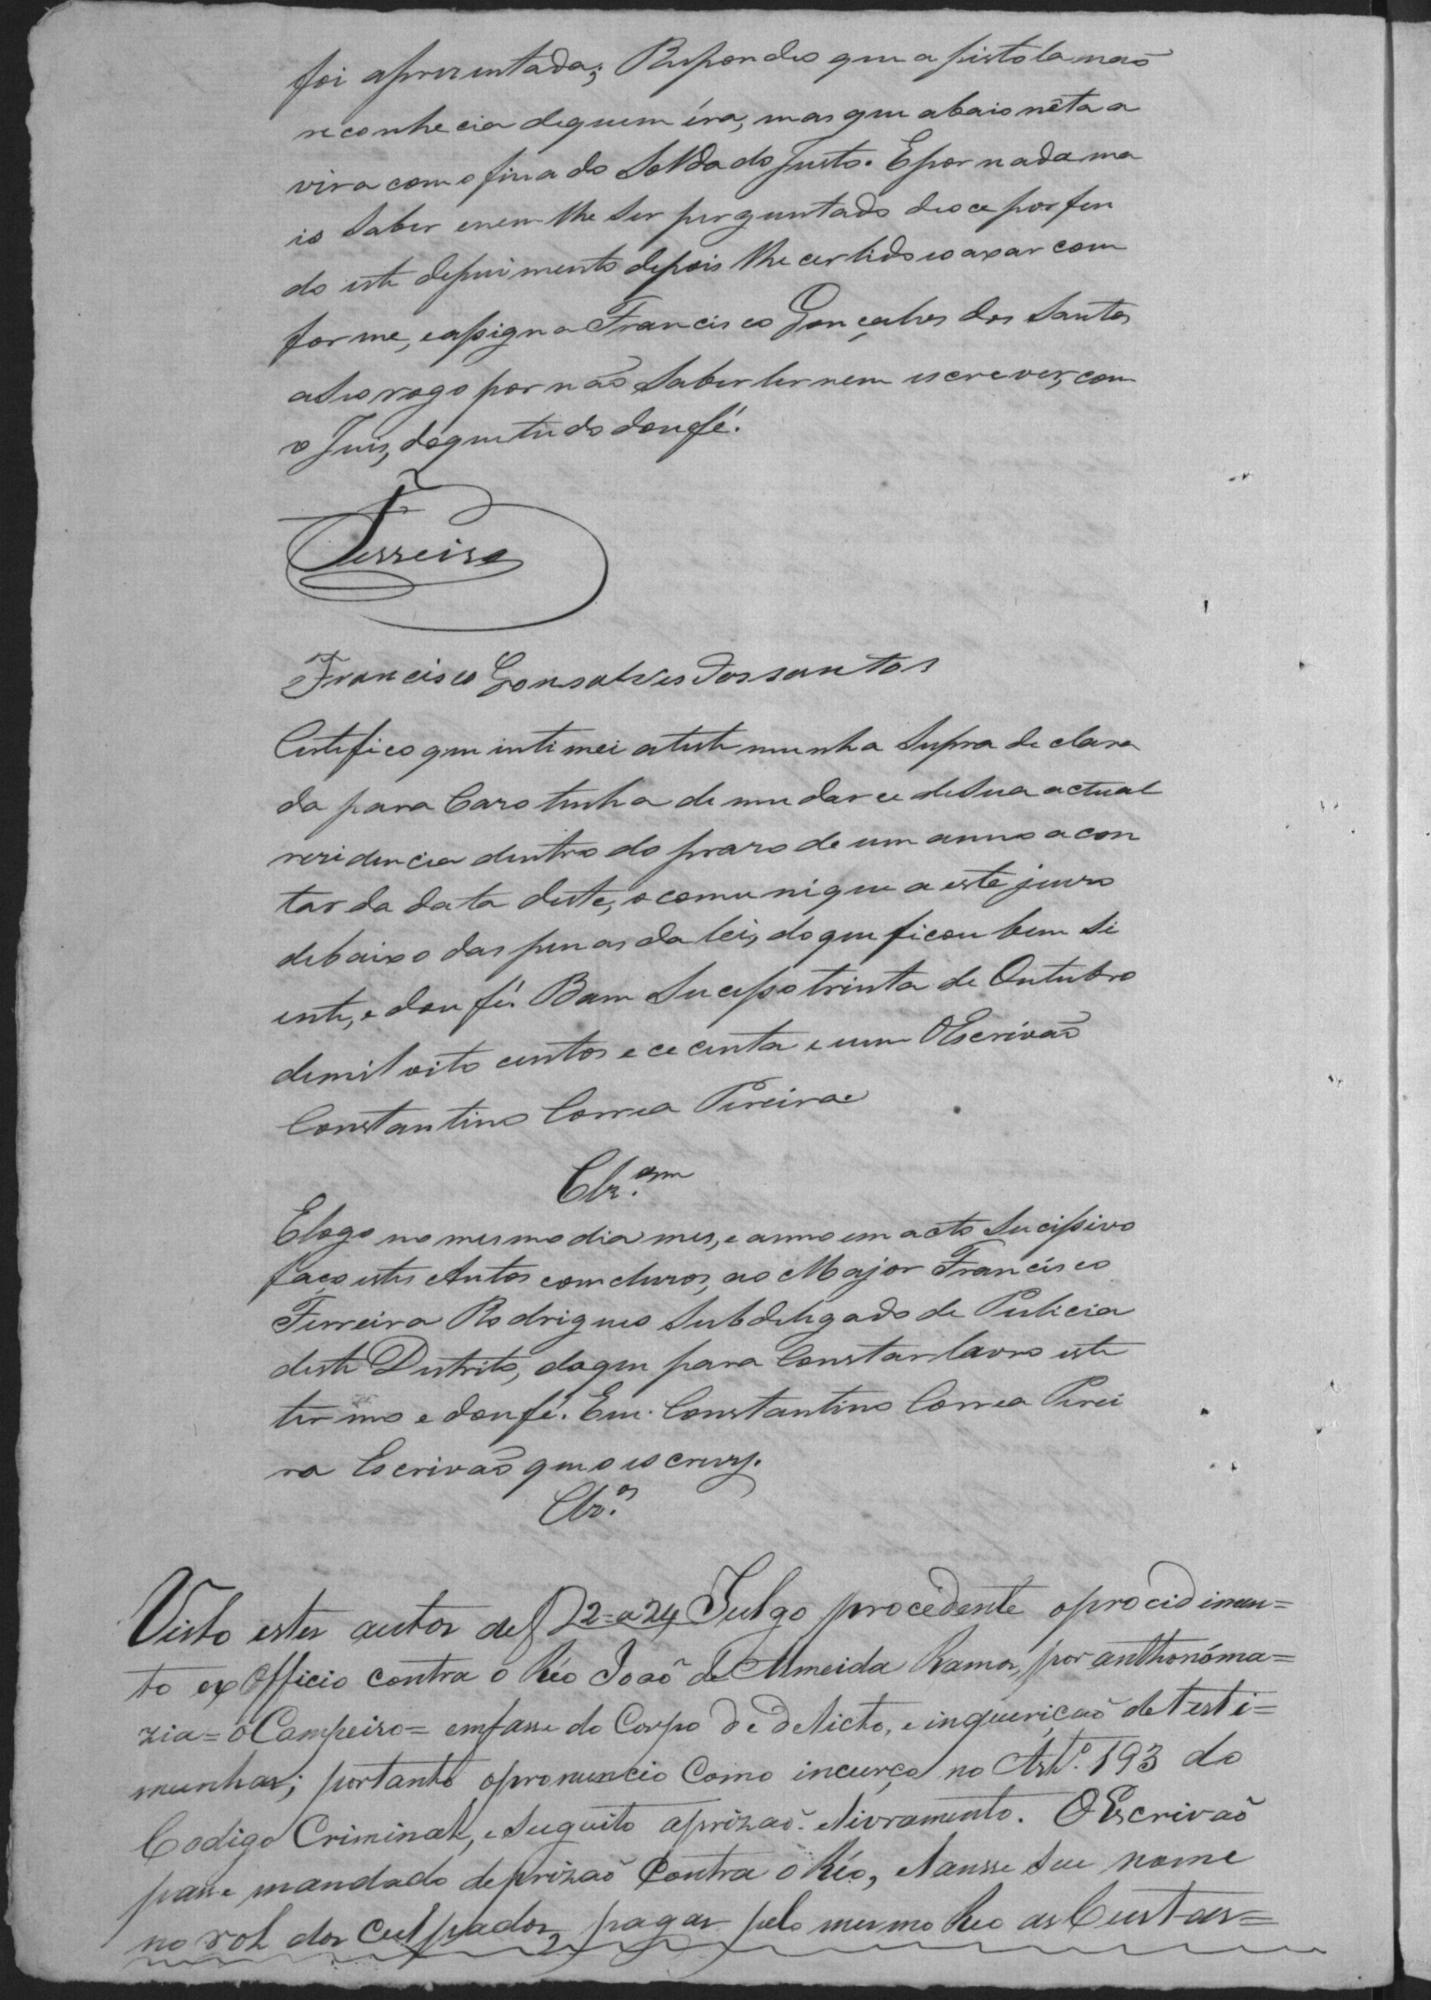 foi aprezentada; Respondeo que a pistola naõ
reconhecia dequem éra, mas que abaionêta a
vira com o finado Soldado Justo. Epor nada ma
is saber enem lhe ser perguntado deoce por fin
do este depuimento depois lhe ser lido eo axar com
forme, eassigna Francisco Gonçalves dos Santos
aSeo rogo por naõ Saber ler nem escrever, com
o Juis, doque tudo doufé.
Ferreira
Francisco Gonsalves dos santos
Certifico que intimei atestemunha Supra declara
da para Cazo tenha de mudarce deSua actual
rezidencia dentro do prazo de um anno acon
tar da data deste, o comunique a este juizo
debaixo das penas da lei, doque ficou bem Si
ente, e dou fé. Bom Sucesso trinta de Outubro
demil oito centos e cecenta e um OEscrivaõ
Constantino Correa Pereira
Clz.am
Elogo no mesmo dia mes, e anno em acto Sucissivo
faço estes Autos comcluzos, ao Major Francisco
Ferreira Rodrigues Subdelegado de Pulicia
deste Destrito, doque para Constar lavro este
termo e doufé. Eu Constantino Correa Perei
ra Escrivaõ que o escrevy.
Clz.os
Visto estes autos def 2=a24 Julgo procedente oprocidimen=
to ex Officio contra o Réo Joaõ de Almeida Ramos, por anthonóma=
zia=o Campeiro= emfasse do Corpo de delicto, e inquériçaõ detesti=
munhas; portanto opronuncio Como incurço no Art.º 193 do
Codigo Criminal, e Sugeito aprizaõ. elivramento. OEscrivaõ
passe mandado deprizaõ Contra o Réo, elansse Seu nome
no rol dos Culpados, pagas pelo mesmo Reo as Custas=